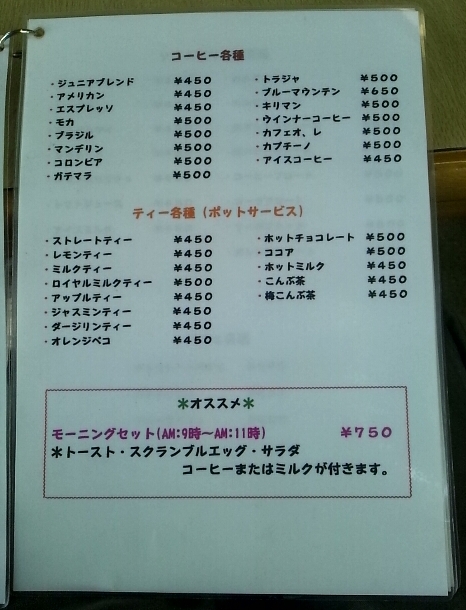 コーヒー各種
・ジュニアブレンド ¥450
・アメリカン ¥450
・エスプレッソ ¥450
・モカ ¥500
・ブラジル ¥500
・マンデリン ¥500
・コロンビア ¥500
・ガテマラ ¥500
・トラジャ ¥500
・ブルーマウンテン ¥650
・キリマン ¥500
・ウインナーコーヒー ¥500
・カフェオ、レ ¥500
・カプチーノ ¥500
・アイスコーヒー ¥450
ティー各種（ポットサービス）
・ストレートティー ¥450
・レモンティー ¥450
・ミルクティー ¥450
・ロイヤルミルクティー ¥500
・アップルティー ¥450
・ジャスミンティー ¥450
・ダージリンティー ¥450
・オレンジペコ ¥450
・ホットチョコレート ¥500
・ココア ¥500
・ホットミルク ¥450
・こんぶ茶 ¥450
・梅こんぶ茶 ¥450
＊オススメ＊
モーニングセット(AM:9時～AM:11時) ¥750
＊トースト・スクランブルエッグ・サラダ
コーヒーまたはミルクが付きます。